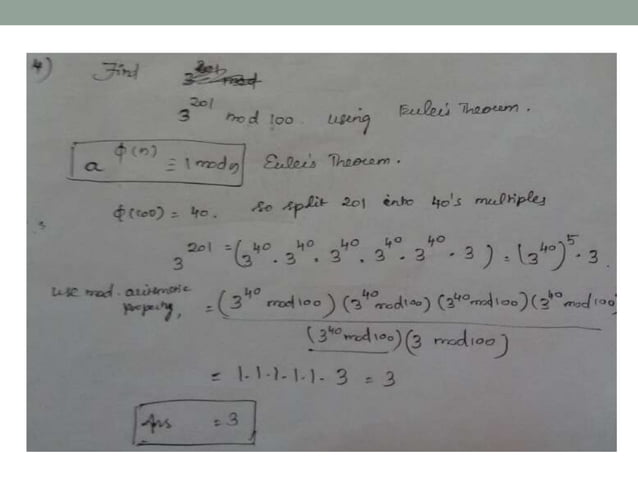 4) Find
3^201 mod 100. using Euler's Theorem.
a^ϕ(n) ≡ 1 mod n Euler's Theorem.
ϕ(100) = 40. so split 201 into 40's multiples
3^201 = (3^40 . 3^40 . 3^40 . 3^40 . 3^40 . 3) = (3^40)^5 . 3.
use mod. arithmetic property, = (3^40 mod 100) (3^40 mod 100) (3^40 mod 100) (3^40 mod 100)
(3^40 mod 100) (3 mod 100)
= 1.1.1.1.1.3 = 3
Ans = 3